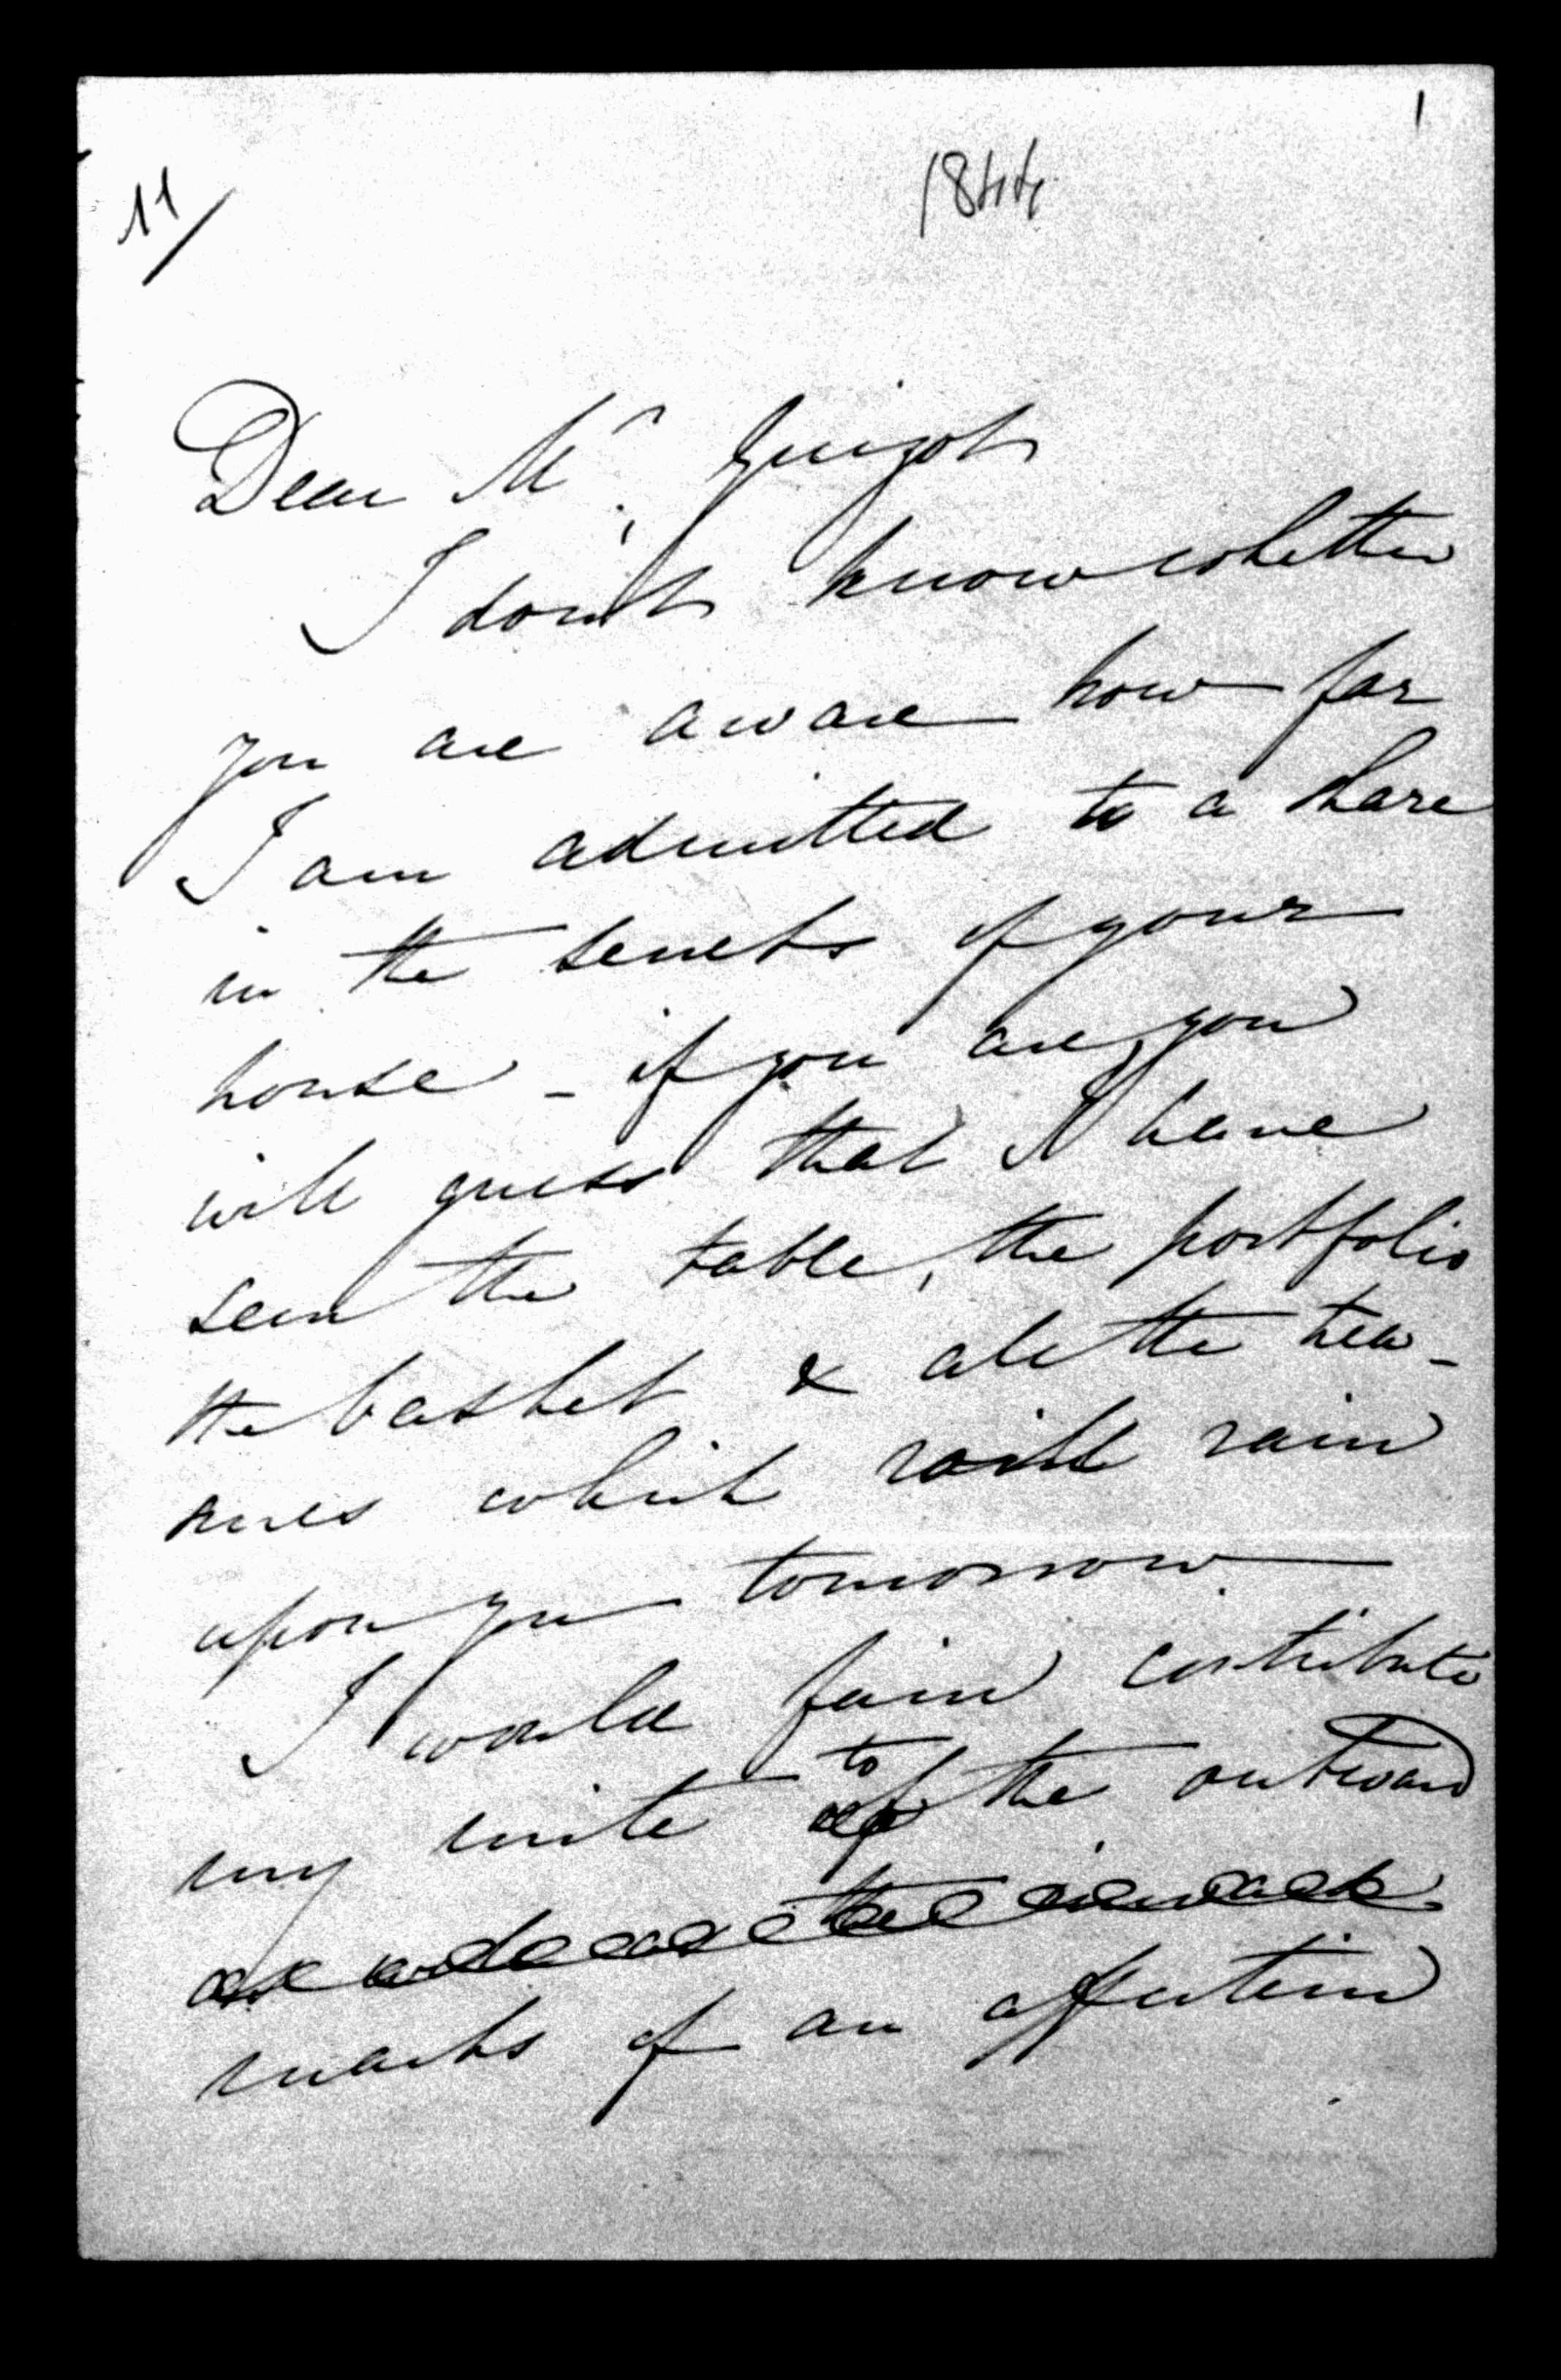 1
11/
1844
Dear Mr. Guizot
I don't know whether
you are aware how far
I am admitted to a share
in the secrets of your
house - if you are, you
will guess that I have
seen the table, the portfolio
the basket & all the trea-
sures which will rain
upon you tomorrow
I would fain contribute
my mite to the outward
marks of an affection